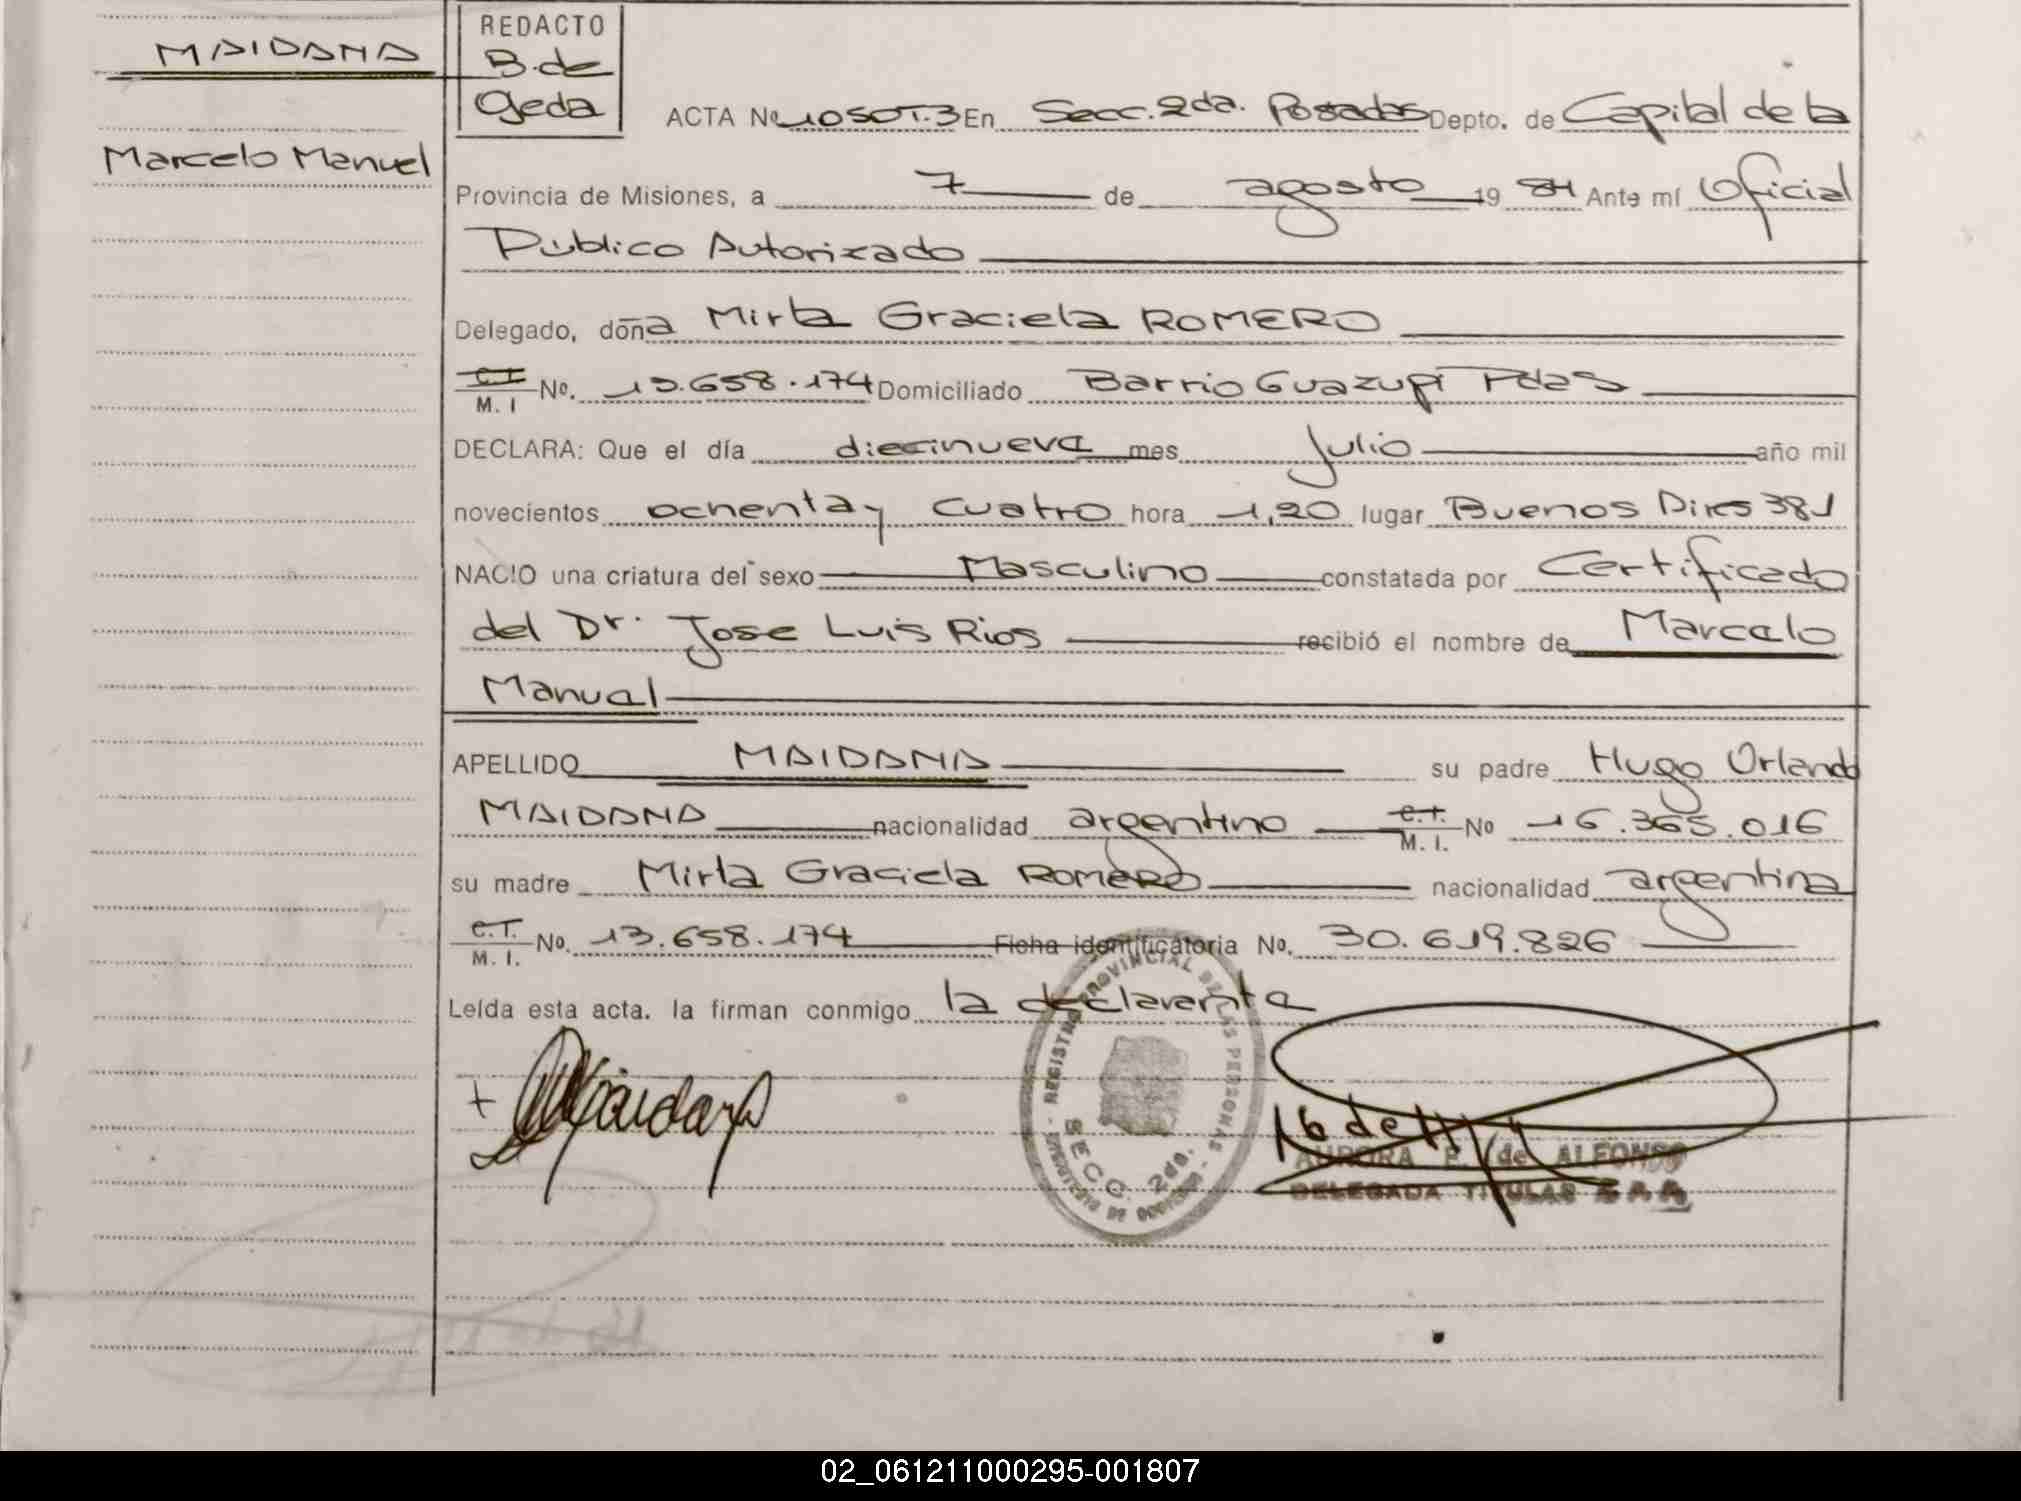 MAIDANA
Marcelo Manuel
REDACTO
B. de
Ojeda
ACTA No 1050 T.3 En Secc. 2da. Posadas Depto. de Capital de la
Provincia de Misiones, a 7 de agosto 19 84 Ante mí Oficial
Público Autorizado
Delegado, doña Mirta Graciela ROMERO
C.I M. I No. 13.658.174 Domiciliado Barrio Guazupí Pdas
DECLARA: Que el día diecinueve mes Julio año mil
novecientos ochenta y cuatro hora 1,20 lugar Buenos Aires 381
NACIO una criatura del sexo Masculino constatada por Certificado
del Dr. Jose Luis Rios recibió el nombre de Marcelo
Manuel
APELLIDO MAIDANA su padre Hugo Orlando
MAIDANA nacionalidad argentino C.I. M. I. No 16.365.016
su madre Mirta Graciela ROMERO nacionalidad argentina
C.I. M. I. No. 13.658.174 Ficha identificatoria No. 30.619.826
Leída esta acta. la firman conmigo la declarante
REGISTRO PROVINCIAL DE LAS PERSONAS
SECC. 2da.
AURORA F. de ALFONSO
DELEGADA TITULAR
02_061211000295-001807